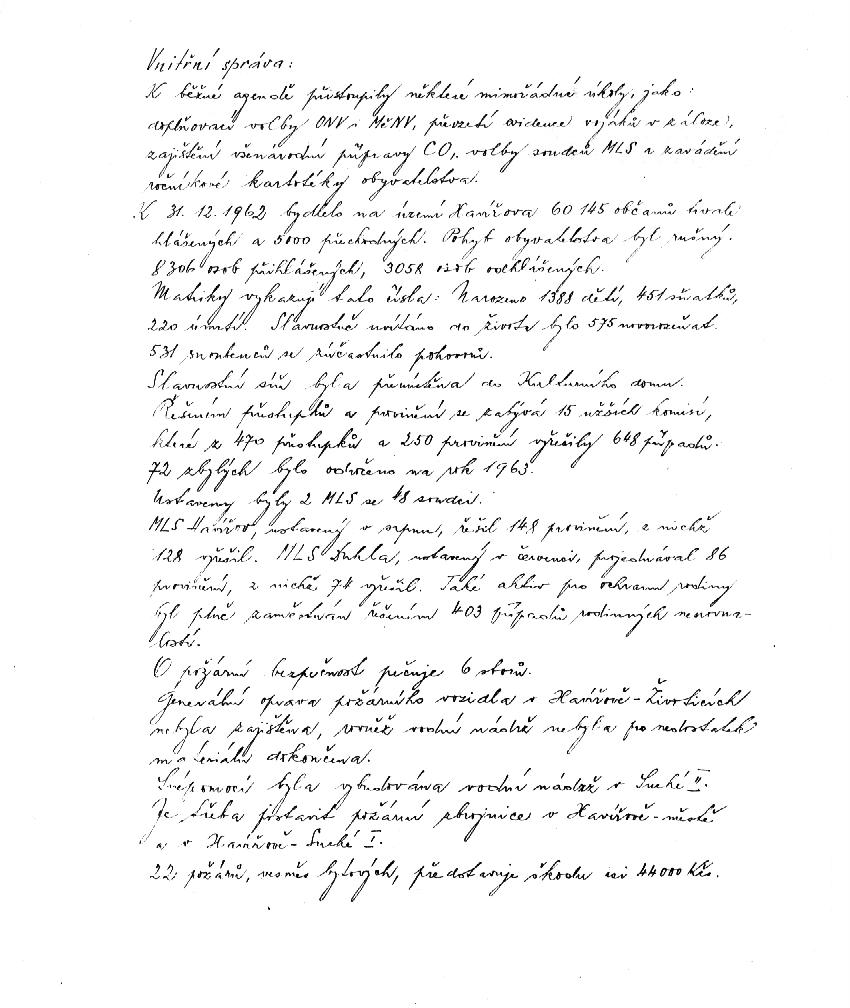 Vnitřní správa:
K běžné agendě přistoupily některé mimořádné úkoly, jako:
doplňovací volby ONV i MěNV, převzetí evidence vojáků v záloze,
zajištění všenárodní přípravy CO, volby soudců MLS a zavádění
ročníkové kartotéky obyvatelstva.
K 31. 12. 1962 bydlelo na území Havířova 60 145 občanů trvale
hlášených a 5000 přechodných. Pohyb obyvatelstva byl rušný.
8306 osob přihlášených, 3058 osob odhlášených.
Matriky vykazují tato čísla: Narozeno 1388 dětí, 451 sňatků,
220 úmrtí. Slavnostně uvítáno do života bylo 575 novorozeňat.
531 snoubenců se zúčastnilo pohovorů.
Slavnostní síň byla přemístěna do Kulturního domu.
Řešením přestupků a provinění se zabývá 15 užších komisí,
které z 470 přestupků a 250 provinění vyřešily 648 případů.
72 zbylých bylo odročeno na rok 1963.
Ustaveny byly 2 MLS se 48 soudci.
MLS Havířov, ustavený v srpnu, řešil 148 provinění, z nichž
128 vyřešil. MLS Dukla, ustavený v červenci, projednával 86
provinění, z nichž 74 vyřešil. Také aktiv pro ochranu rodiny
byl plně zaměstnán řešením 403 případů rodinných nesrovna-
lostí.
O požární bezpečnost pečuje 6 sborů.
Generální oprava požárního vozidla v Havířově-Životicích
nebyla zajištěna, rovněž vodní nádrž nebyla pro nedostatek
materiálu dokončena.
Svépomocí byla vybudována vodní nádrž v Suché II.
Je třeba postavit požární zbrojnice v Havířově-městě
a v Havířově-Suché I.
22 požárů, vesměs bytových, představuje škodu asi 44000 Kčs.